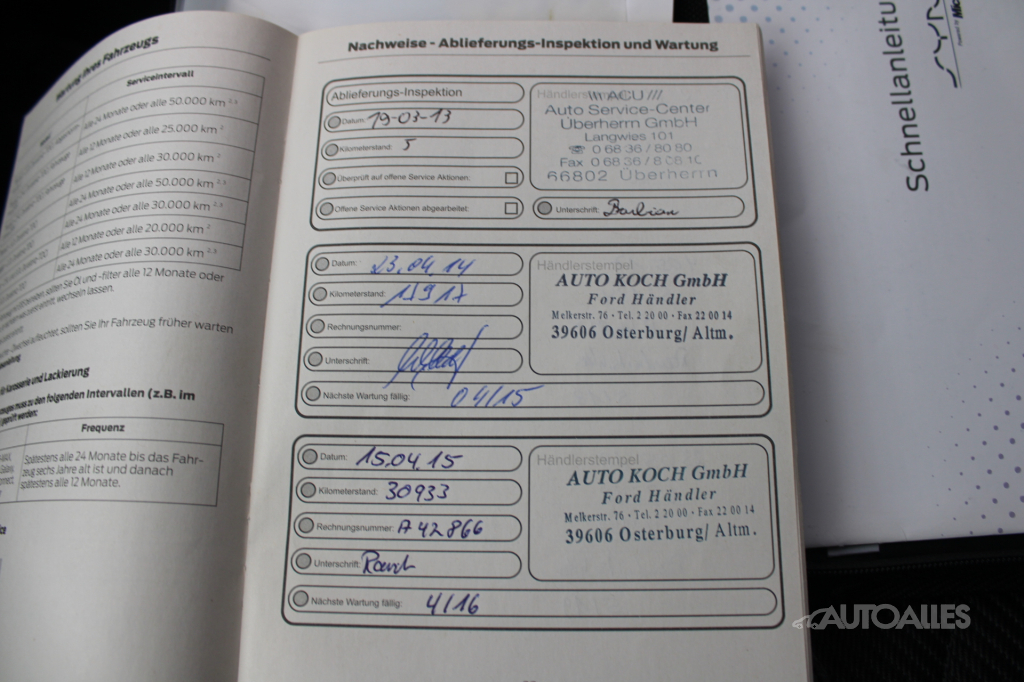 Wartung Ihres Fahrzeugs
Serviceintervall
Alle 24 Monate oder alle 50.000 km 2, 3
Alle 12 Monate oder alle 25.000 km 2
Alle 12 Monate oder alle 30.000 km 2
Alle 24 Monate oder alle 50.000 km 2, 3
Alle 24 Monate oder alle 30.000 km 2, 3
Alle 12 Monate oder alle 20.000 km 2
Alle 24 Monate oder alle 30.000 km 2, 3
sollten Sie Öl und -filter alle 12 Monate oder
wechseln lassen.
aufleuchtet, sollten Sie Ihr Fahrzeug früher warten
Karosserie und Lackierung
muss zu den folgenden Intervallen (z.B. im
geprüft werden:
Frequenz
Spätestens alle 24 Monate bis das Fahr-
zeug sechs Jahre alt ist und danach
spätestens alle 12 Monate.
Nachweise - Ablieferungs-Inspektion und Wartung
Ablieferungs-Inspektion
Datum: 19-03-13
Kilometerstand: 5
Überprüft auf offene Service Aktionen:
Offene Service Aktionen abgearbeitet:
Händlerstempel
/// ACU ///
Auto Service-Center
Überherrn GmbH
Langwies 101
☏ 0 68 36 / 80 80
Fax 0 68 36 / 8 08 10
66802 Überherrn
Unterschrift:
Datum: 23.04.14
Kilometerstand:
Rechnungsnummer:
Unterschrift:
Nächste Wartung fällig: 04/15
Händlerstempel
AUTO KOCH GmbH
Ford Händler
Melkerstr. 76 · Tel. 2 20 00 · Fax 22 00 14
39606 Osterburg/ Altm.
Datum: 15.04.15
Kilometerstand: 30933
Rechnungsnummer: A 42866
Unterschrift:
Nächste Wartung fällig: 4/16
Händlerstempel
AUTO KOCH GmbH
Ford Händler
Melkerstr. 76 · Tel. 2 20 00 · Fax 22 00 14
39606 Osterburg/ Altm.
Schnellanleitu
SYN
AUTOALLES